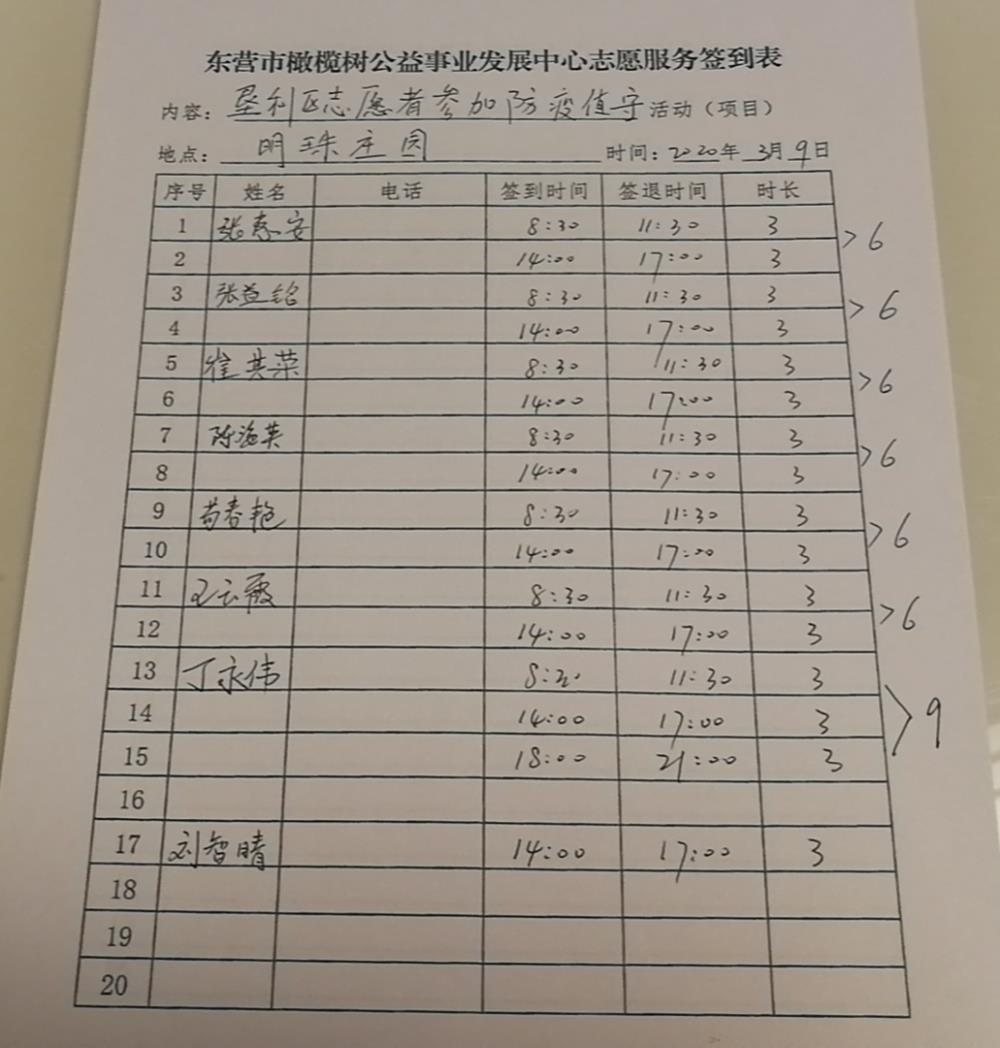 东营市橄榄树公益事业发展中心志愿服务签到表
内容：垦利区志愿者参加防疫值守活动（项目）
地点：明珠庄园 时间：2020年3月9日
序号 姓名 电话 签到时间 签退时间 时长
1 张惠安 8:30 11:30 3
2 14:00 17:00 3 >6
3 张益铭 8:30 11:30 3
4 14:00 17:00 3 >6
5 崔其菜 8:30 11:30 3
6 14:00 17:00 3 >6
7 陈海英 8:30 11:30 3
8 14:00 17:00 3 >6
9 苟春艳 8:30 11:30 3
10 14:00 17:00 3 >6
11 王云霞 8:30 11:30 3
12 14:00 17:00 3 >6
13 丁永伟 8:30 11:30 3
14 14:00 17:00 3 >9
15 18:00 21:00 3
16
17 刘智晴 14:00 17:00 3
18
19
20